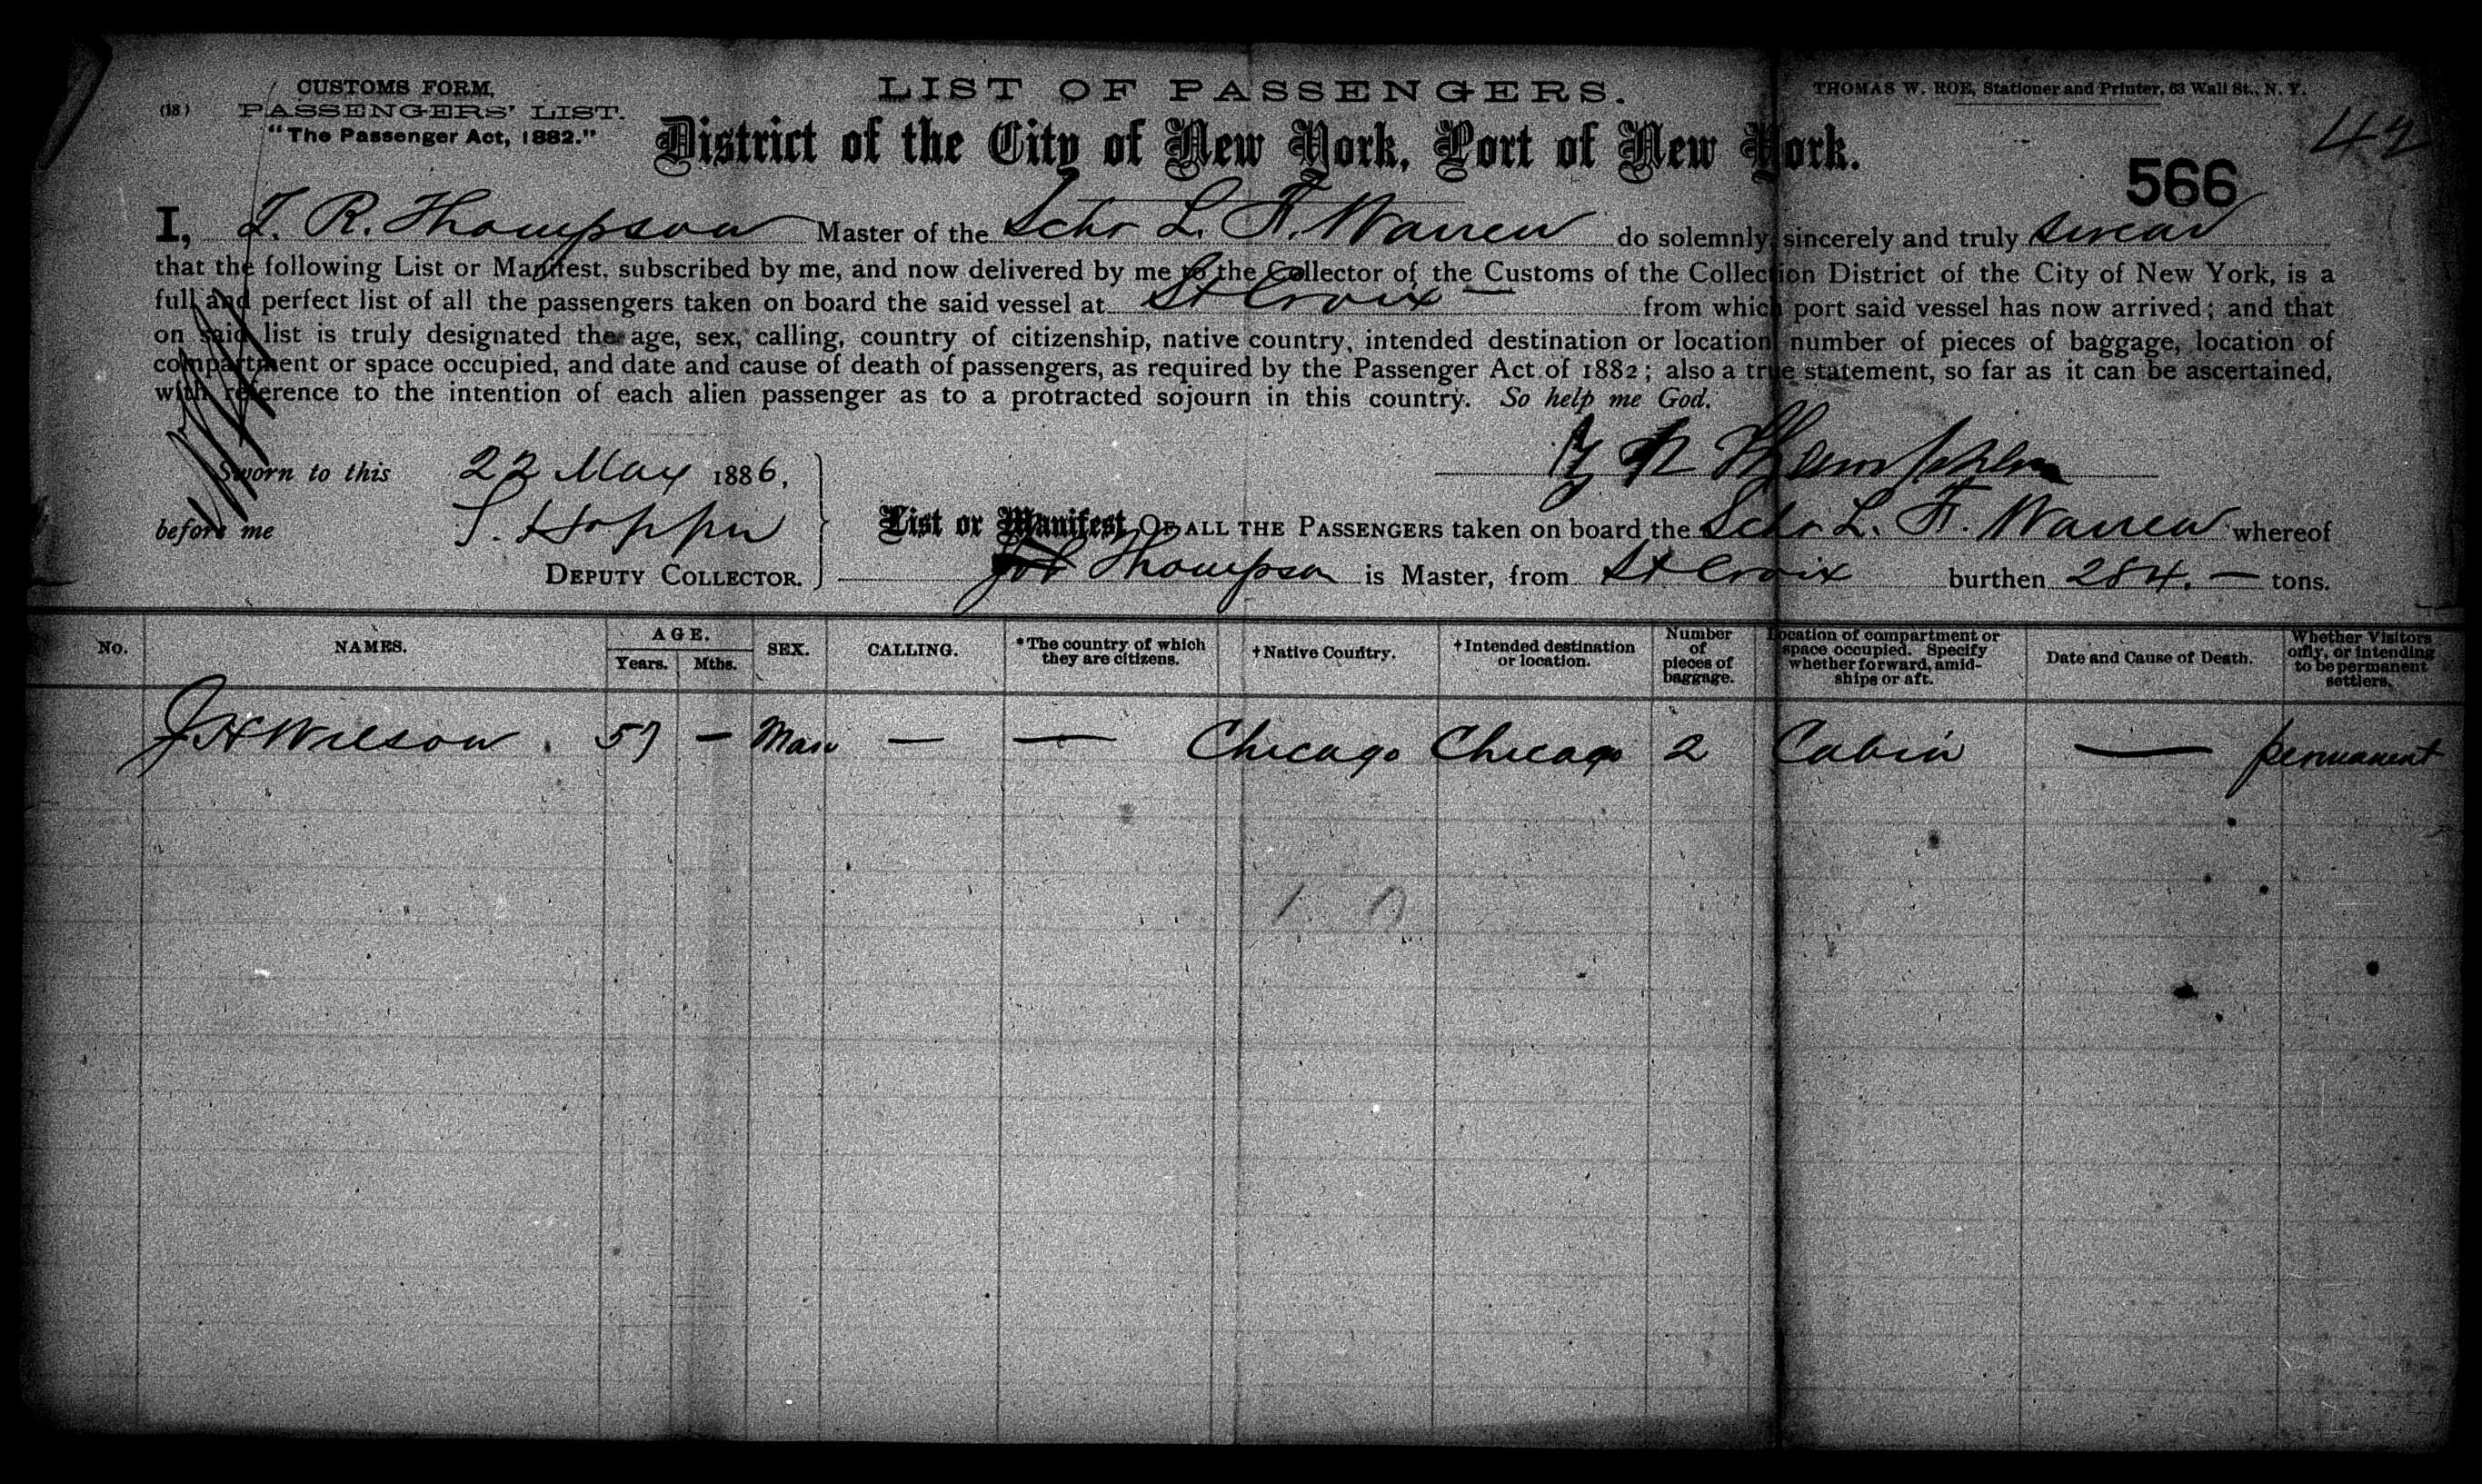 CUSTOMS FORM,
(18) PASSENGERS' LIST.
"The Passenger Act, 1882."
LIST OF PASSENGERS.
THOMAS W. ROE, Stationer and Printer, 53 Wall St., N. Y.
District of the City of New York, Port of New York.
42
566
I, T. R. Thompson Master of the Schr L. F. Warren do solemnly, sincerely and truly swear
that the following List or Manifest, subscribed by me, and now delivered by me to the Collector of the Customs of the Collection District of the City of New York, is a
full and perfect list of all the passengers taken on board the said vessel at St Croix — from which port said vessel has now arrived; and that
on said list is truly designated the age, sex, calling, country of citizenship, native country, intended destination or location number of pieces of baggage, location of
compartment or space occupied, and date and cause of death of passengers, as required by the Passenger Act of 1882; also a true statement, so far as it can be ascertained,
with reference to the intention of each alien passenger as to a protracted sojourn in this country. So help me God.
Sworn to this 22 May 1886,
before me
DEPUTY COLLECTOR.
List or Manifest, OF ALL THE PASSENGERS taken on board the Schr L. F. Warren whereof
Thompson is Master, from St Croix burthen 284. — tons.
No. NAMES. AGE. Years. Mths. SEX. CALLING. *The country of which they are citizens. †Native Country. †Intended destination or location. Number of pieces of baggage. Location of compartment or space occupied. Specify whether forward, amidships or aft. Date and Cause of Death. Whether Visitors only, or intending to be permanent settlers.
J H Wilson 57 — Man — — Chicago Chicago 2 Cabin — permanent